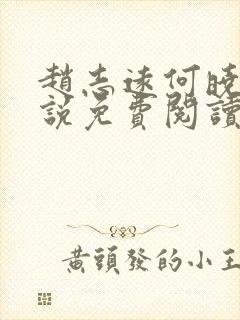 趙志遠何曉
說免費閱讀
黃頭發的小王